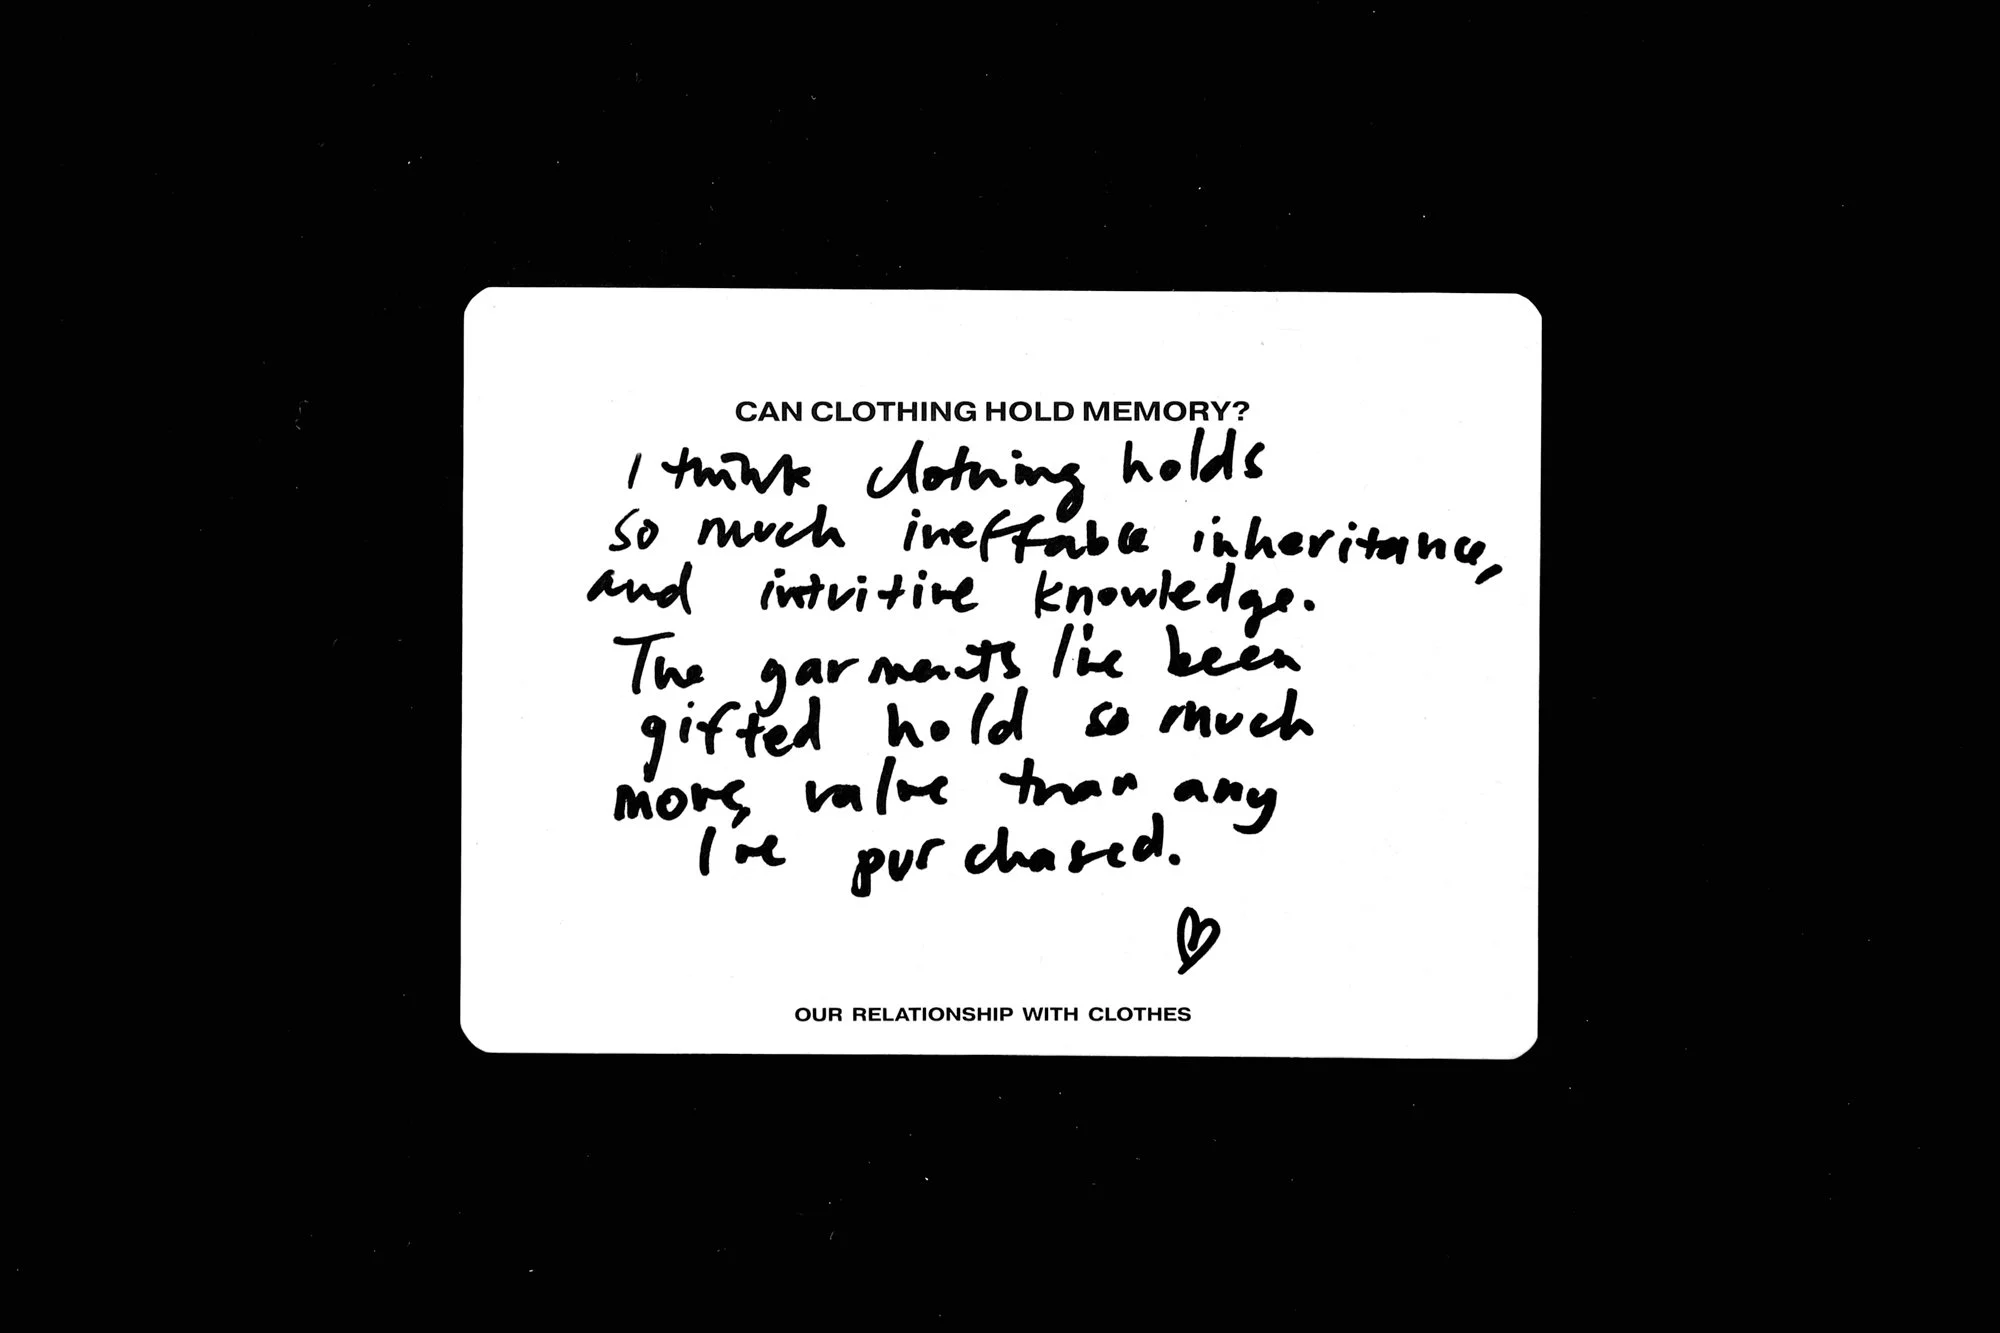 CAN CLOTHING HOLD MEMORY?
I think clothing holds
so much ineffable inheritance,
and intuitive knowledge.
The garments I've been
gifted hold so much
more, value than any
I've purchased.
OUR RELATIONSHIP WITH CLOTHES